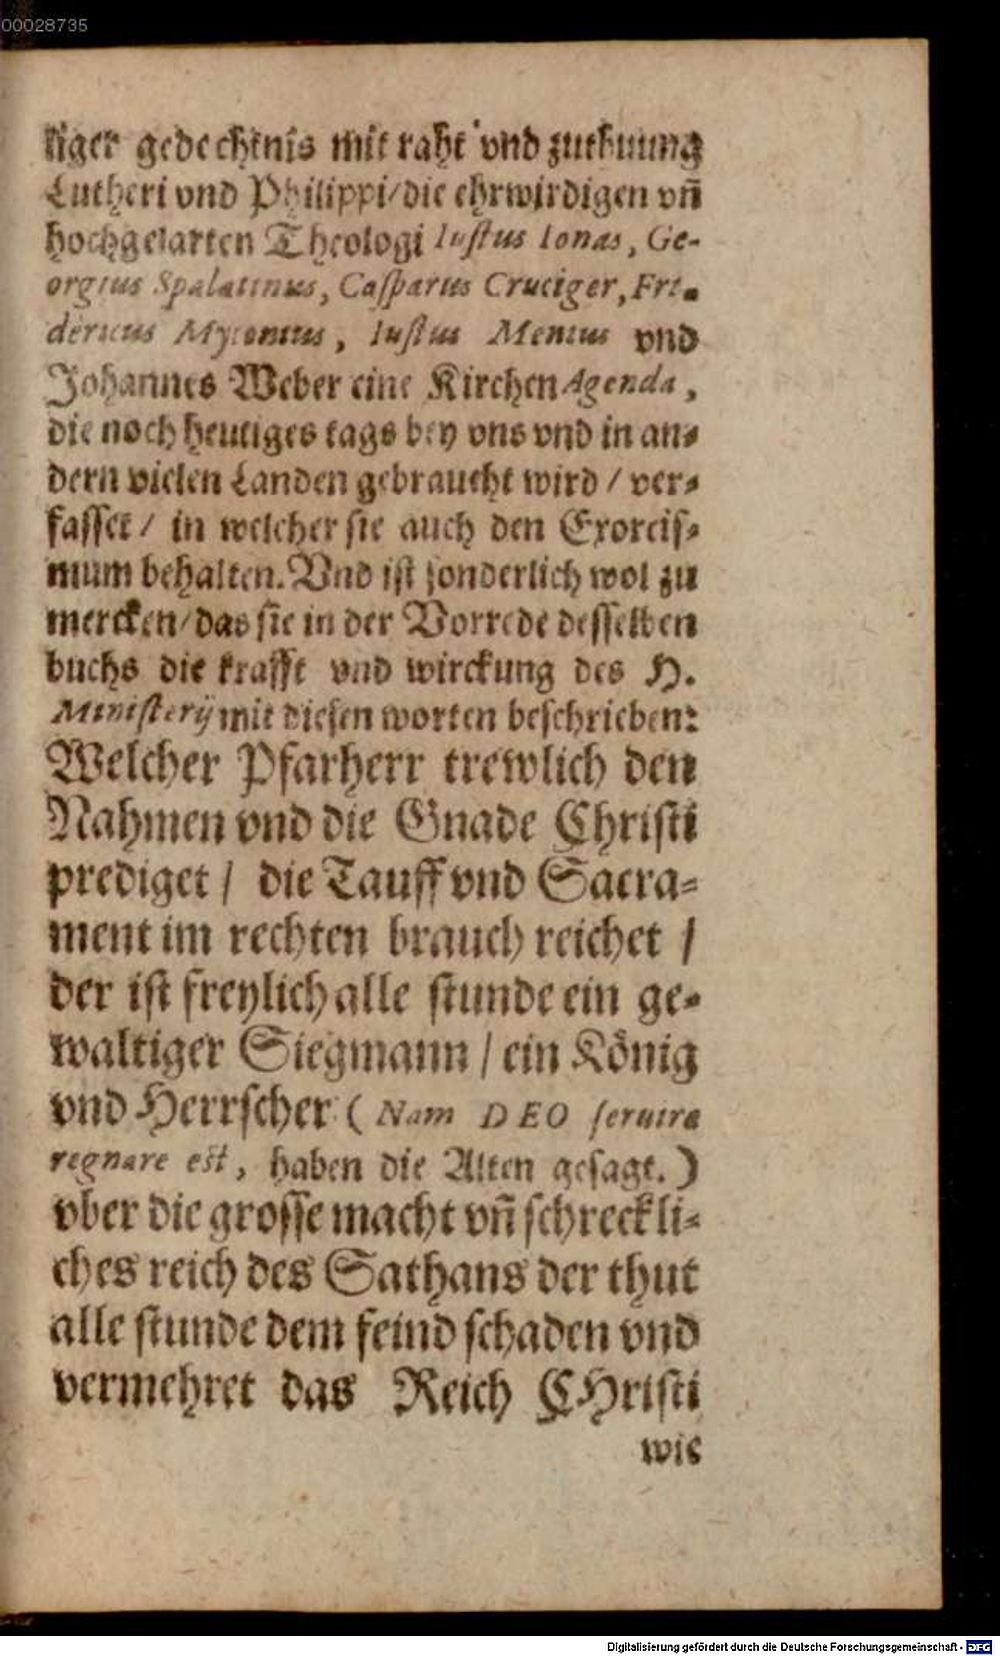 00028735
liger gedechtnis mit raht vnd zuthuung
Lutheri vnd Philippi/die ehrwirdigen vñ
hochgelarten Theologi Iustus Ionas, Ge-
orgius Spalatinus, Casparus Cruciger, Fri-
dericus Myconius, Iustus Menius vnd
Johannes Weber eine Kirchen Agenda,
die noch heutiges tags bey vns vnd in an-
dern vielen Landen gebraucht wird / ver-
fasset / in welcher sie auch den Exorcis-
mum behalten. Vnd ist sonderlich wol zu
mercken/das sie in der Vorrede desselben
buchs die krafft vnd wirckung des H.
Ministerij mit diesen worten beschrieben:
Welcher Pfarherr trewlich den
Nahmen vnd die Gnade Christi
prediget / die Tauff vnd Sacra-
ment im rechten brauch reichet /
der ist freylich alle stunde ein ge-
waltiger Siegmann / ein König
vnd Herrscher ( Nam DEO servire
regnare est, haben die Alten gesagt.)
vber die grosse macht vñ schreckli-
ches reich des Sathans der thut
alle stunde dem feind schaden vnd
vermehret das Reich CHristi
wie
Digitalisierung gefördert durch die Deutsche Forschungsgemeinschaft - DFG